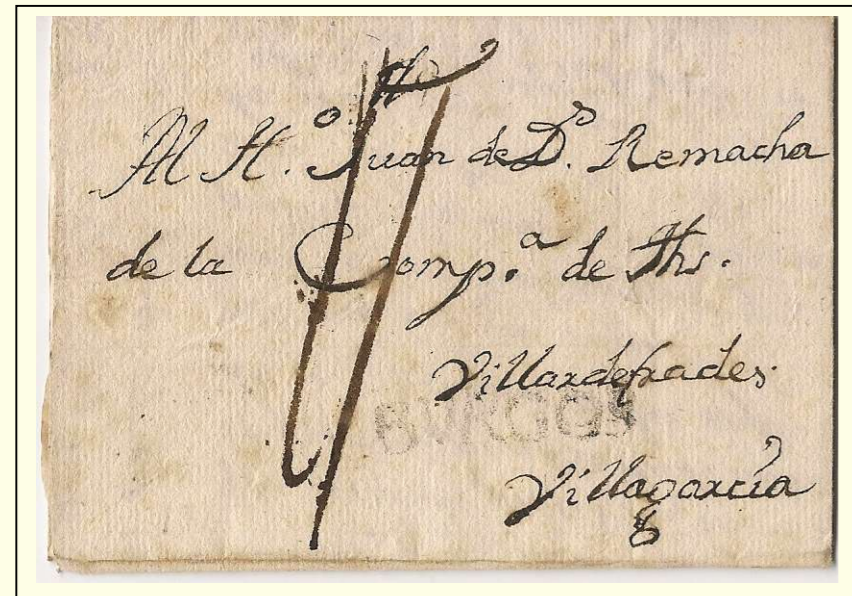 Al H.º Juan de D.s Remacha
de la Comp.a de Jhs.
Villardefrades
BURGOS
Villagarcía